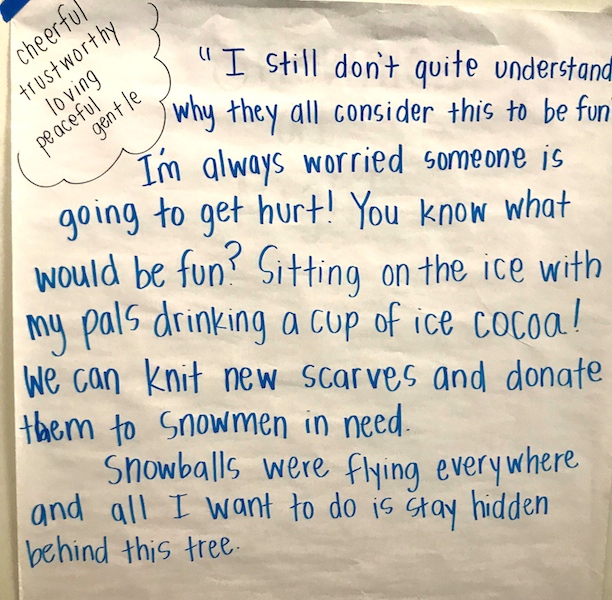 cheerful
trustworthy
loving
peaceful
gentle
"I still don't quite understand
why they all consider this to be fun
I'm always worried someone is
going to get hurt! You know what
would be fun? Sitting on the ice with
my pals drinking a cup of ice cocoa!
We can knit new scarves and donate
them to snowmen in need.
Snowballs were flying everywhere
and all I want to do is stay hidden
behind this tree.